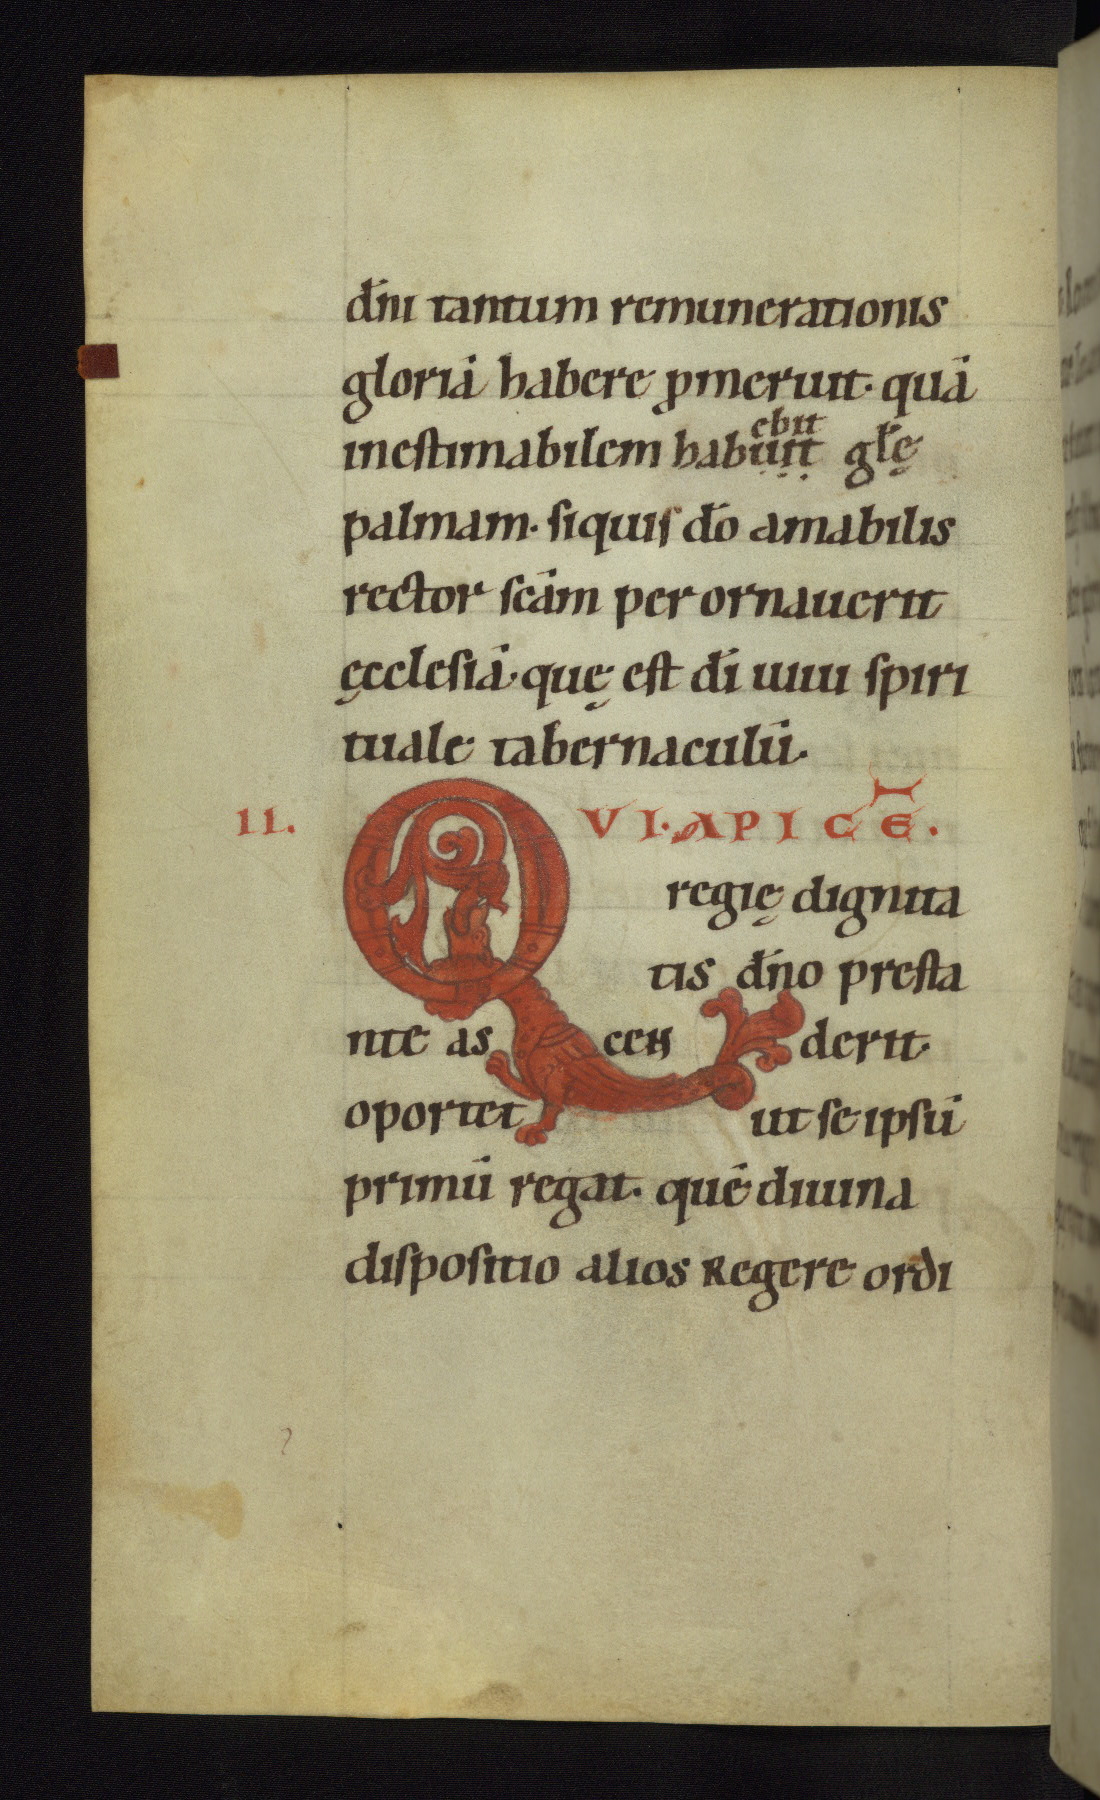 dn̄i tantum remunerationis
gloriā habere ꝓmeruit· quā
ebit
inestimabilem habuit gl̄ę
palmam· siquis dō amabilis
rector scām per ornauerit
ęcclesiā· quę est dī uiui spiri
tuale tabernaculū·
II. QUI· APICĒ.
regię dignita
tis dn̄o presta
nte ascenderit·
oportet ut se ipsū
primū regat· quē diuina
dispositio alios Regere ordi